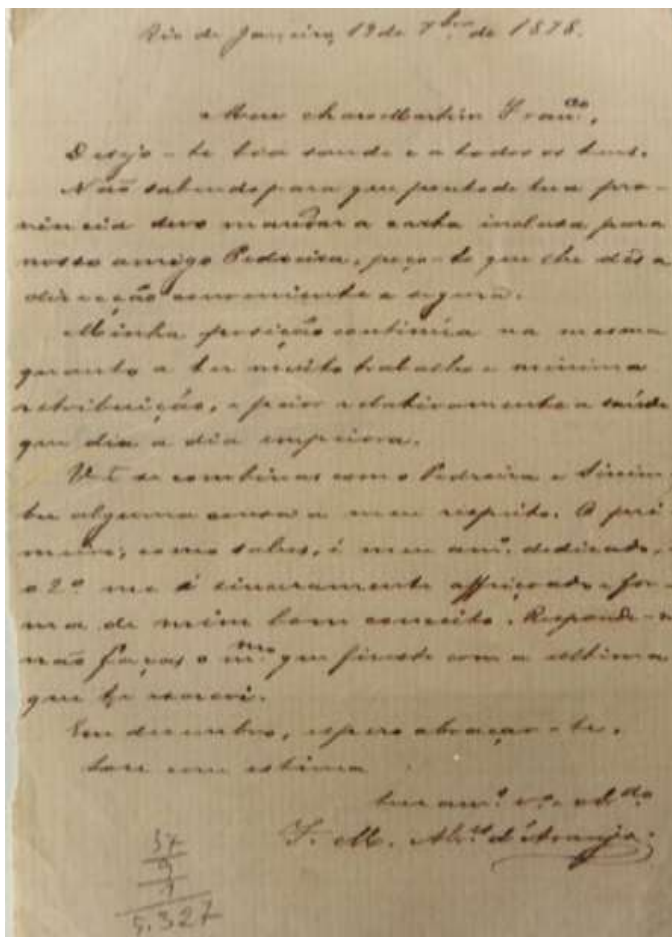 Rio de Janeiro, 19 de 7bro de 1878.
Meu charo Martim Franco,
Desejo-te boa saude e a todos os teus.
Não sabendo para que ponto de tua pro-
vincia devo mandar a carta inclusa para
nosso amigo Pedreira, peço-te que lhe dês a
direcção conveniente e segura.
Minha posição continúa na mesma
quanto a ter muito trabalho e minima
retribuição, e peior relativamente a saúde
que dia a dia empeiora.
Vê se combinas com o Pedreira e Sinim-
bu alguma cousa a meu respeito. O pri
meiro, como sabes, é meu amo. dedicado,
o 2º me é sinceramente affeiçoado e for
ma de mim bom conceito. Responde-
não faças o mmo que fizeste com a ultima
que te escrevi.
Em dezembro, espero abraçar-te.
Sou com estima
teu amo. vo. e obdo.
F. M. Alz. d'Araujo.
37
9
1
5.327